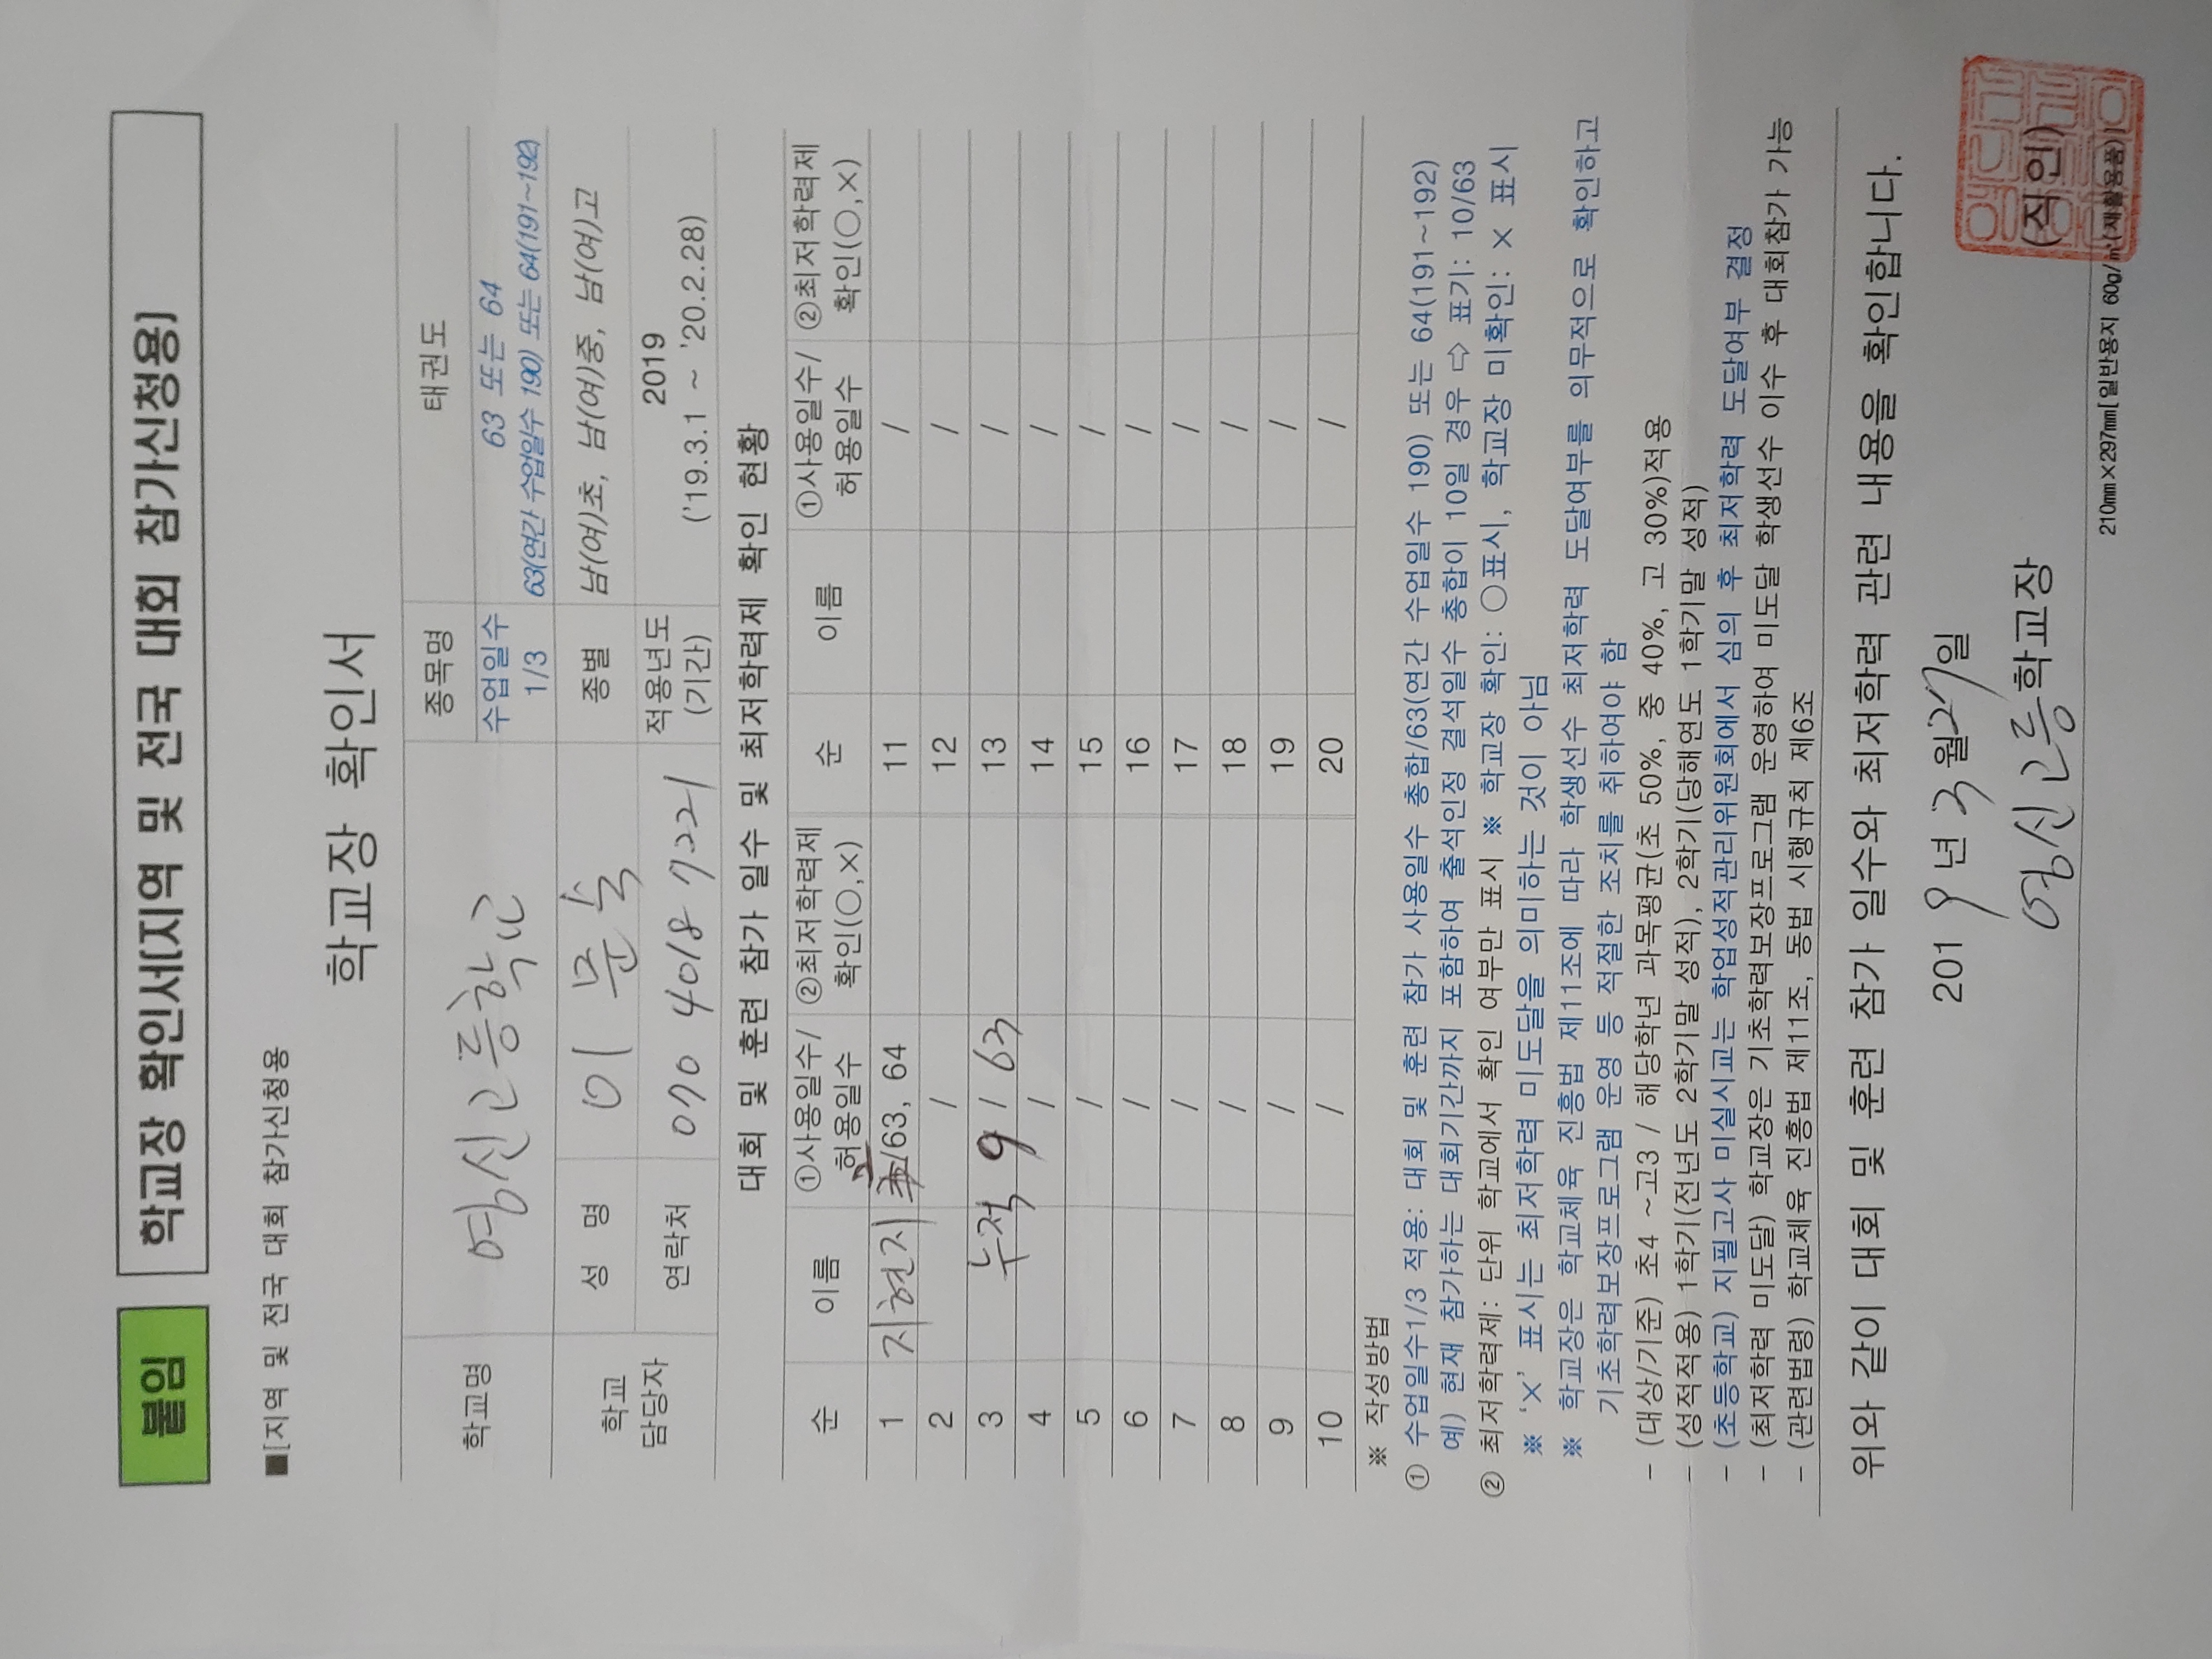 붙임
학교장 확인서(지역 및 전국 대회 참가신청용)
■[지역 및 전국 대회 참가신청용
학교장 확인서
학교명 영신고등학교 종목명 태권도
수업일수 1/3 63 또는 64
63(연간 수업일수 190) 또는 64(191~192)
학교 담당자 성 명 이문숙 종별 남(여)초, 남(여)중, 남(여)고
연락처 070 4018 7221 적용년도 (기간) 2019
('19.3.1 ~ '20.2.28)
대회 및 훈련 참가 일수 및 최저학력제 확인 현황
순 이름 ①사용일수/허용일수 ②최저학력제 확인(○,×) 순 이름 ①사용일수/허용일수 ②최저학력제 확인(○,×)
1 지현지 /63, 64 11 /
2 / 12 /
3 누적 9 / 63 13 /
4 / 14 /
5 / 15 /
6 / 16 /
7 / 17 /
8 / 18 /
9 / 19 /
10 / 20 /
※ 작성방법
① 수업일수1/3 적용: 대회 및 훈련 참가 사용일수 총합/63(연간 수업일수 190) 또는 64(191~192)
예) 현재 참가하는 대회기간까지 포함하여 출석인정 결석일수 총합이 10일 경우 ⇨ 표기: 10/63
② 최저학력제: 단위 학교에서 확인 여부만 표시 ※ 학교장 확인: ○표시, 학교장 미확인: × 표시
※ '×' 표시는 최저학력 미도달을 의미하는 것이 아님
※ 학교장은 학교체육 진흥법 제11조에 따라 학생선수 최저학력 도달여부를 의무적으로 확인하고
기초학력보장프로그램 운영 등 적절한 조치를 취하여야 함
- (대상/기준) 초4 ~고3 / 해당학년 과목평균(초 50%, 중 40%, 고 30%)적용
- (성적적용) 1학기(전년도 2학기말 성적), 2학기(당해연도 1학기말 성적)
- (초등학교) 지필고사 미실시교는 학업성적관리위원회에서 심의 후 최저학력 도달여부 결정
- (최저학력 미도달) 학교장은 기초학력보장프로그램 운영하여 미도달 학생선수 이수 후 대회참가 가능
- (관련법령) 학교체육 진흥법 제11조, 동법 시행규칙 제6조
위와 같이 대회 및 훈련 참가 일수와 최저학력 관련 내용을 확인합니다.
2019 년 3 월 27일
영신고등학교장 (직인)
210㎜×297㎜[일반용지 60g/㎡(재활용품)]